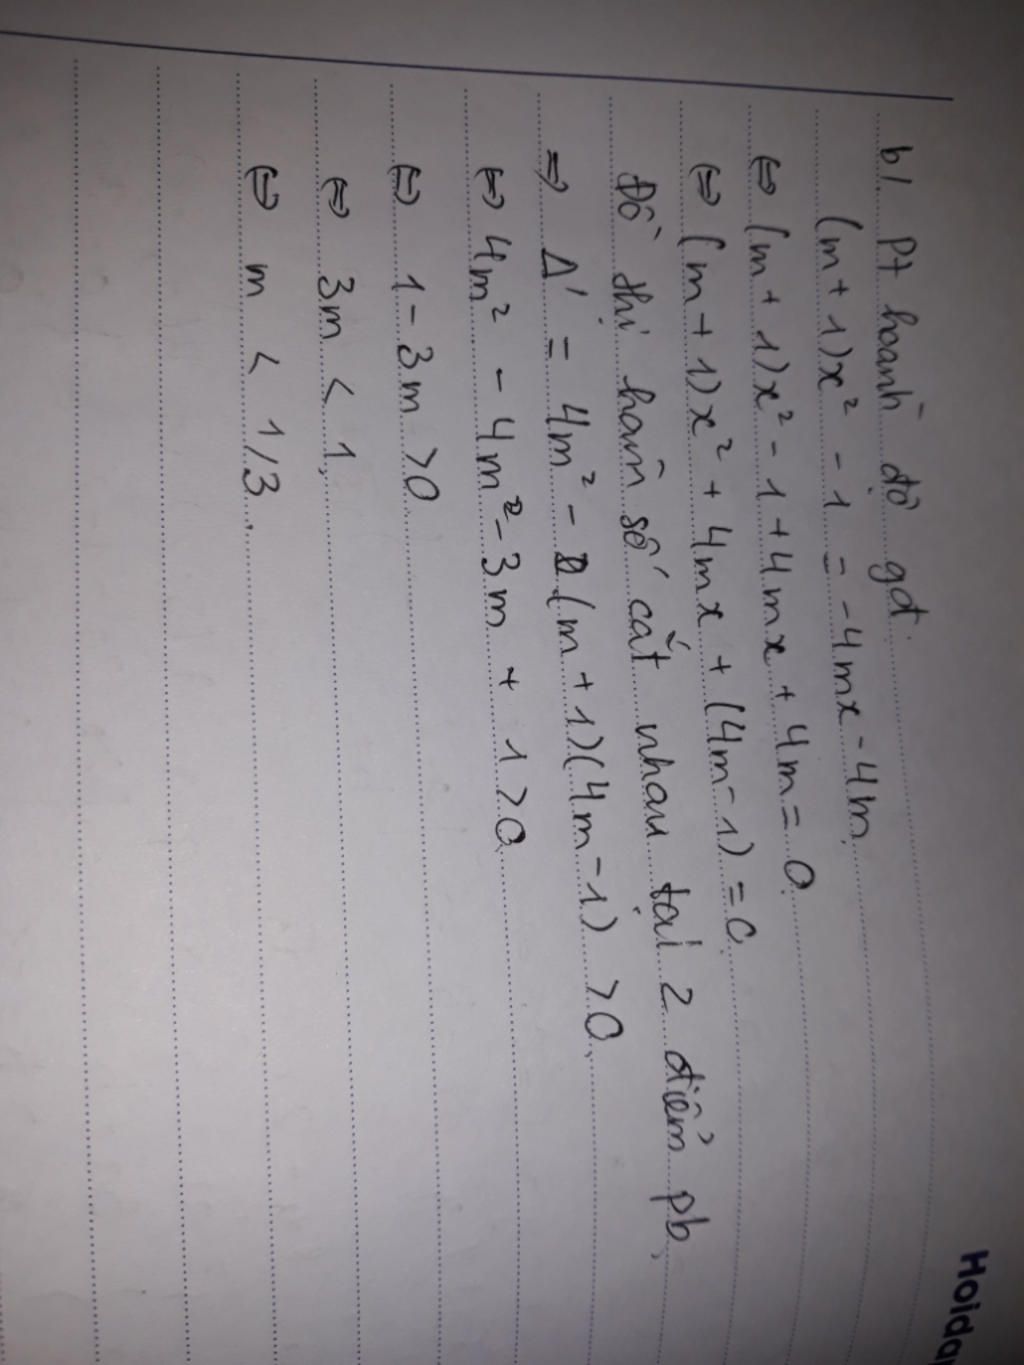 Hoida
b/ Pt hoành độ gđ.
(m + 1)x² - 1 = -4mx - 4m
⇔ (m + 1)x² - 1 + 4mx + 4m = 0
⇔ (m + 1)x² + 4mx + (4m - 1) = 0
Đồ thị hàm số cắt nhau tại 2 điểm pb.
⇒ Δ' = 4m² - (m + 1)(4m - 1) > 0
⇔ 4m² - 4m² - 3m + 1 > 0
⇔ 1 - 3m > 0
⇔ 3m < 1
⇔ m < 1/3.